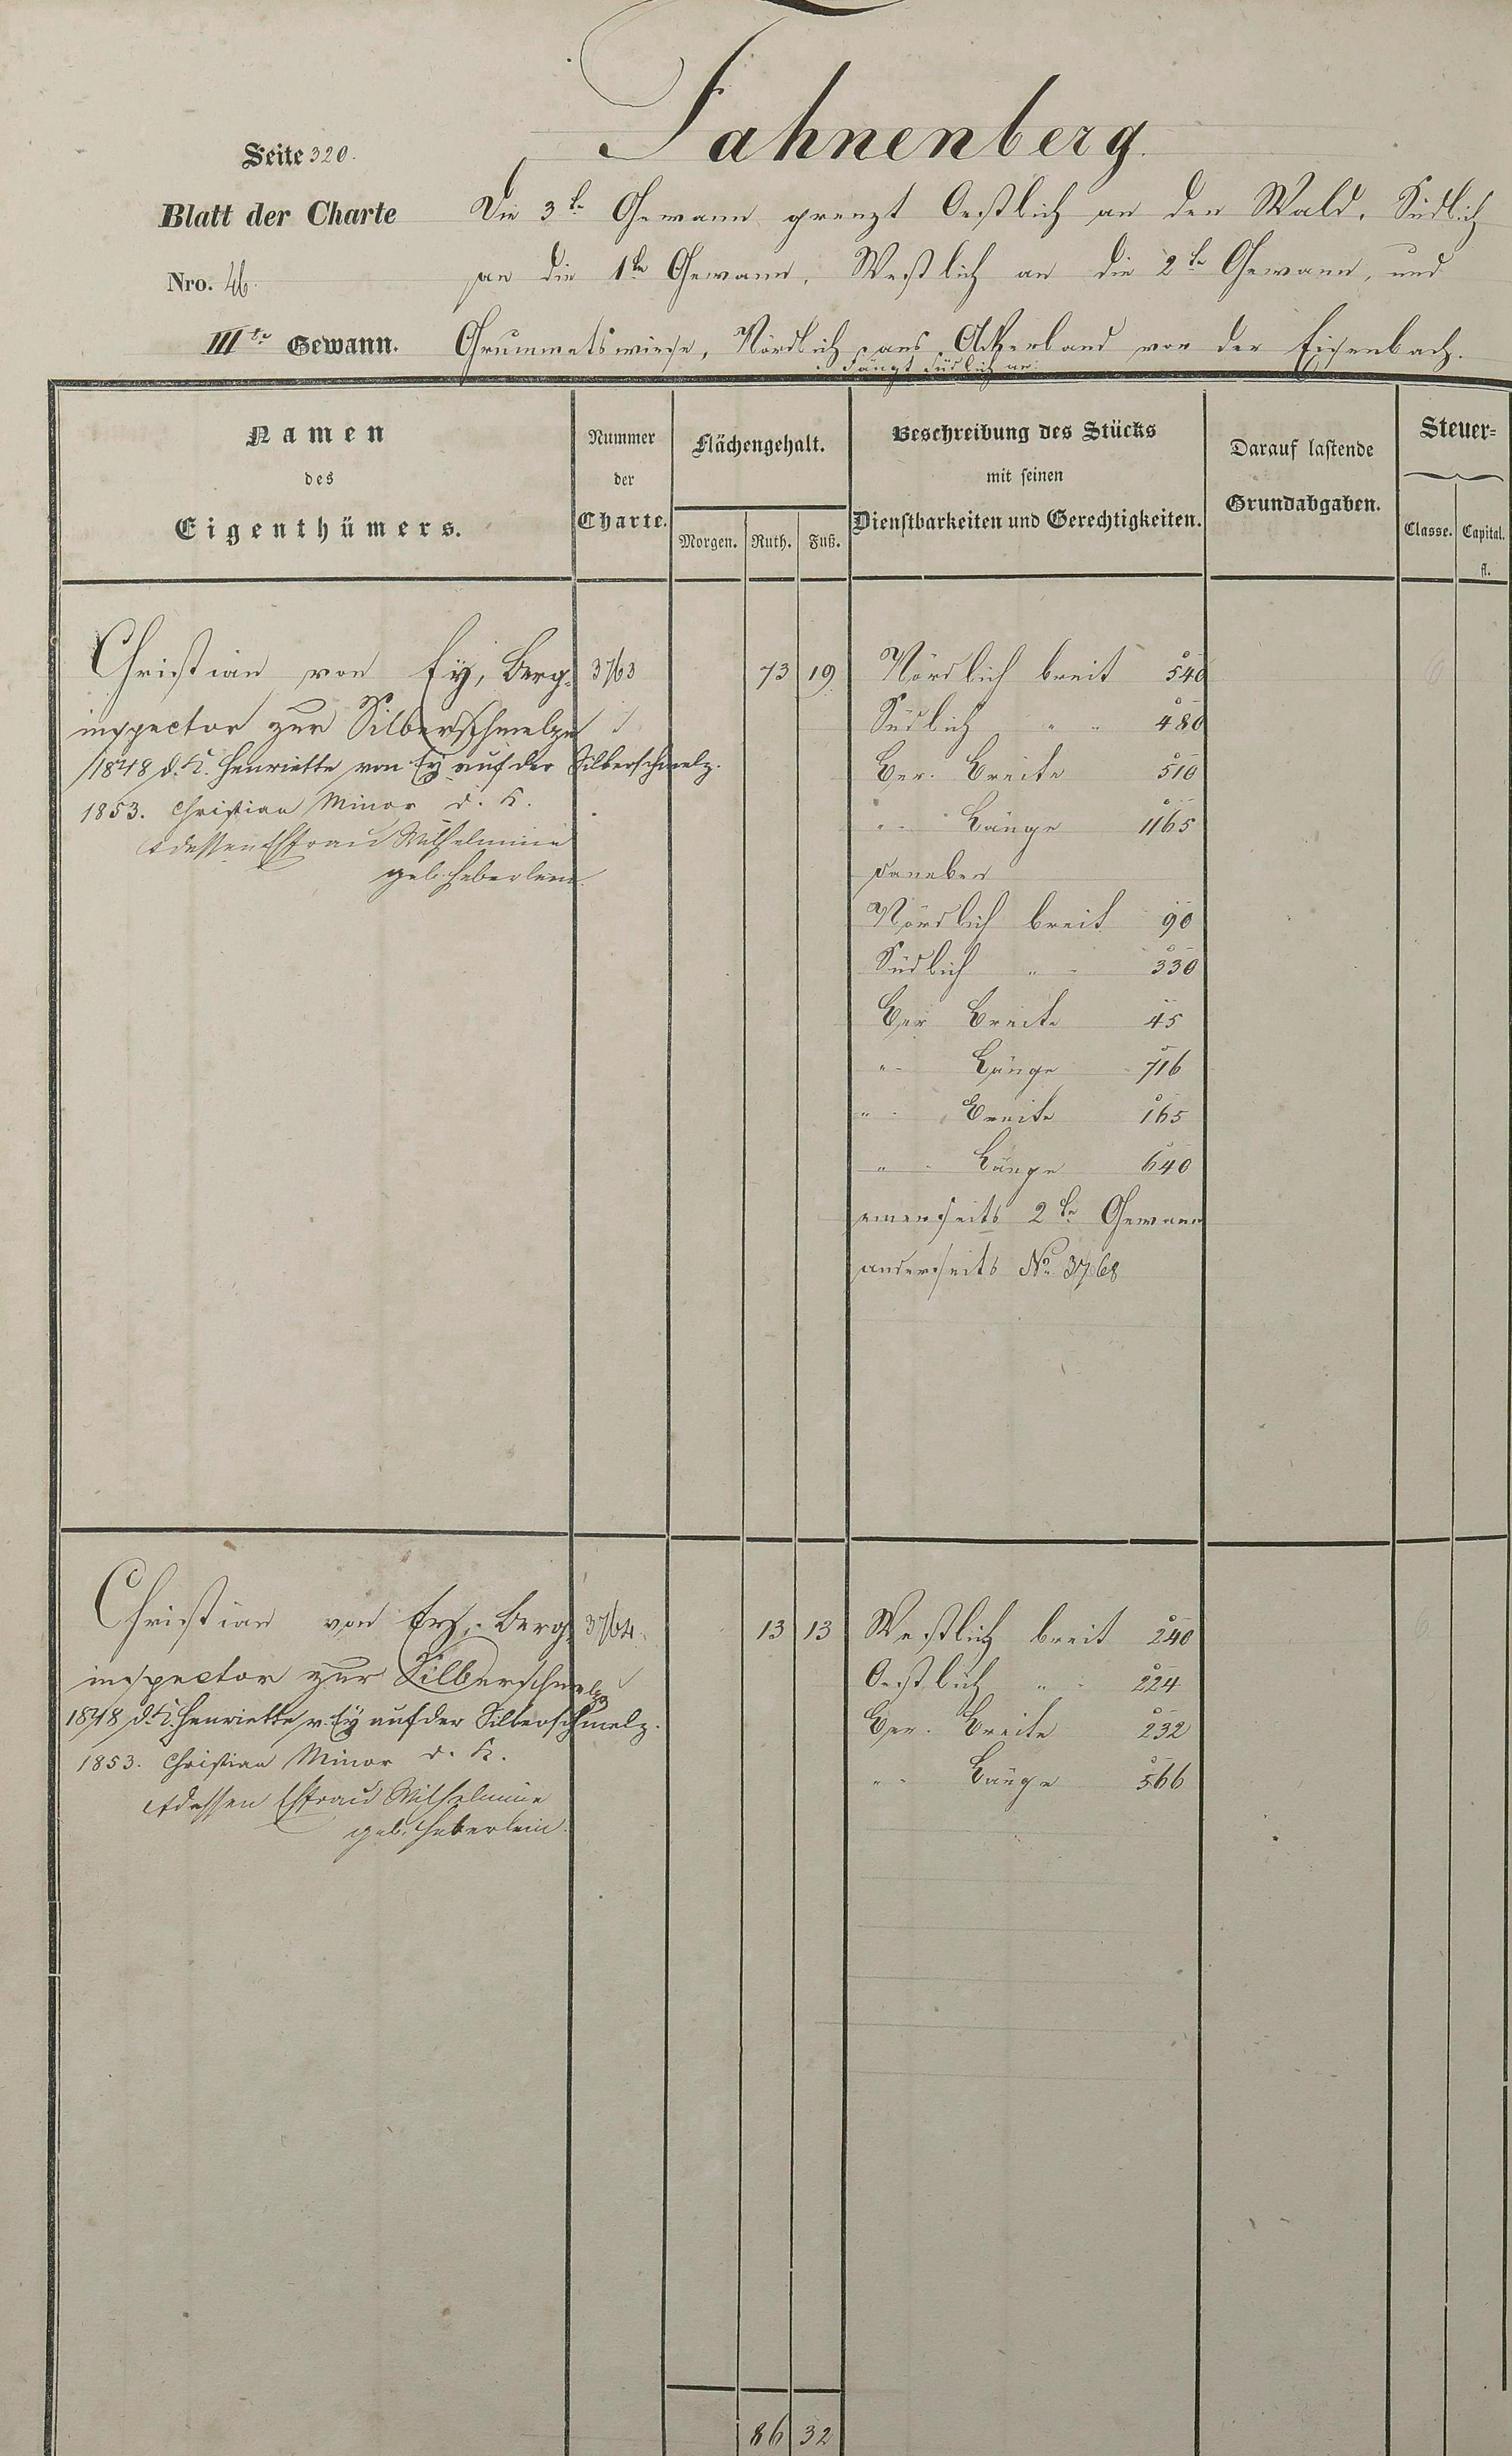 Fahnenberg.
Seite 320.
Blatt der Charte
Nro. 46.
IIIte Gewann.
Die 3te Gewann grenzt Oestlich an den Wald, Südlich
an die 1te Gewann, Westlich an die 2te Gewann, und
Grummetswiese, Nördlich ans Ackerland von der Eisenbach.
Fängt südlich an.
Namen
des
Eigenthümers.
Nummer
der
Charte.
Flächengehalt.
Morgen. Ruth. Fuß.
Beschreibung des Stücks
mit seinen
Dienstbarkeiten und Gerechtigkeiten.
Darauf lastende
Grundabgaben.
Steuer-
Classe. Capital.
fl.
Christian von Ey, Berg- 3763 73 19 Nördlich breit 540
inspector zur Silberschmelze Südlich " " 480
1848 d. K. Henriette von Ey auf der Silberschmelz. Ber. Breite 510
1853. Christian Minor d. K. " Länge 1165
& dessen Ehfrau Wilhelmine
geb. Heberlein
daneben
Nördlich breit 90
Südlich " " 330
Ber Breite 45
" Länge 716
" Breite 165
" Länge 640
einerseits 2te Gewann
anderseits No. 3768
6
Christian von Ey, Berg- 3764. 13 13 Westlich breit 240 6
inspector zur Silberschmelze Oestlich " " 224
1848 d. K. Henriette v. Ey auf der Silberschmelz. Ber. Breite 232
1853. Christian Minor d. K. " Länge 566
& dessen Ehfrau Wilhelmine
geb. Heberlein.
86 32